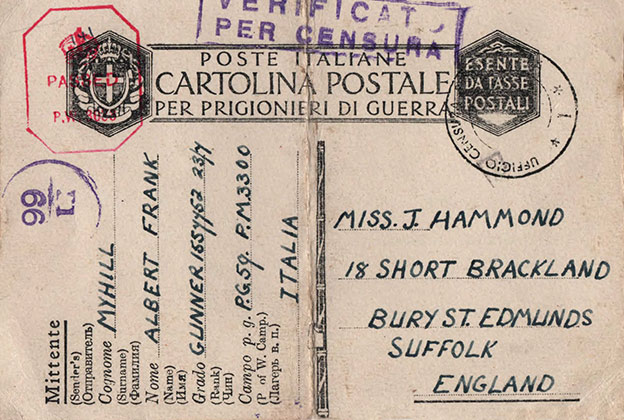 VERIFICATO
PER CENSURA
PASSED
P.W.
POSTE ITALIANE
CARTOLINA POSTALE
PER PRIGIONIERI DI GUERRA
ESENTE
DA TASSE
POSTALI
* 1 *
UFFICIO CENSU
99
Mittente
(Sender's)
(Отправитель)
Cognome MYHILL
(Surname)
(Фамилия)
Nome ALBERT FRANK
(Name)
(Имя)
Grado GUNNER 1654462 23/7
(Rank)
(Чин)
Campo p. g. P.G.59. P.M.3300
(P of W. Camp.)
(Лагерь в. п.)
ITALIA
MISS. J. HAMMOND
18 SHORT BRACKLAND
BURY ST. EDMUNDS
SUFFOLK
ENGLAND